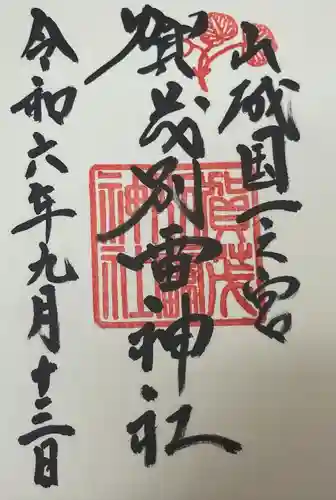 山城国一之宮
賀茂別雷神社
令和六年九月十三日
賀茂別雷神社